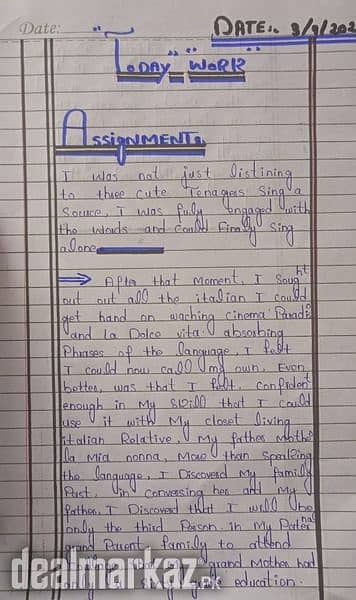 Date:
DATE:. 3/9/202
TODAY WORK
ASSIGNMENT:
I was not just listining
to three cute Tenagers Sing a
Source, I was fuly engaged with
the words and could finaly Sing
alone
After that moment, I Sought
out out all the italian I could
get hand on waching cinema Paradi
and La Dolce vita absorbing
Phrases of the language, I felt
I could now call my own. Even
better, was that I felt confident
enough in My Skill that I could
use it with My closet living
italian Relative, My father Mother
la mia nonna, More than Speaking
the language, I Discoverd My family
Past, in conversing her and My
father. I Discoverd that I will be
only the third Person in My Pater nal
grand Parent family to attend
grand Mother had
education.
dealmarkaz.pk